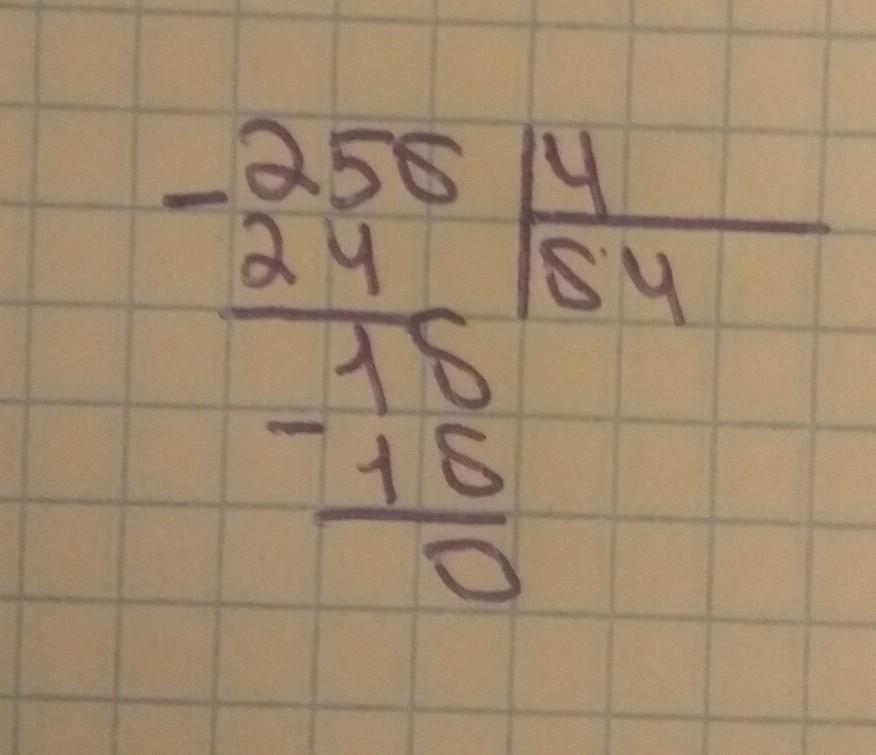 -256 | 4
24 | 64
16
-16
0